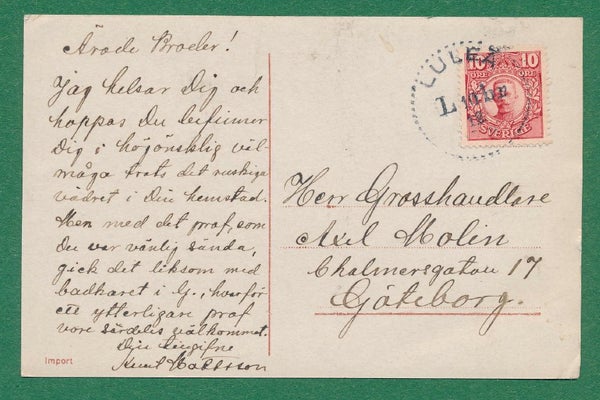 Ärade Broder!
Jag helsar Dig och
hoppas Du befinner
Dig i högönsklig väl-
måga trots det ruskiga
vädret i Din hemstad.
Men med det praf, som
Du var vänlig sända,
gick det liksom med
badkaret i G., hvarför
ett ytterligare praf
vore särdeles välkommet.
Din
Knut
Import
LULEÅ
10 10
ÖRE ÖRE
SVERIGE
Herr Grosshandlare
Axel Molin
Chalmersgatan 17
Göteborg.